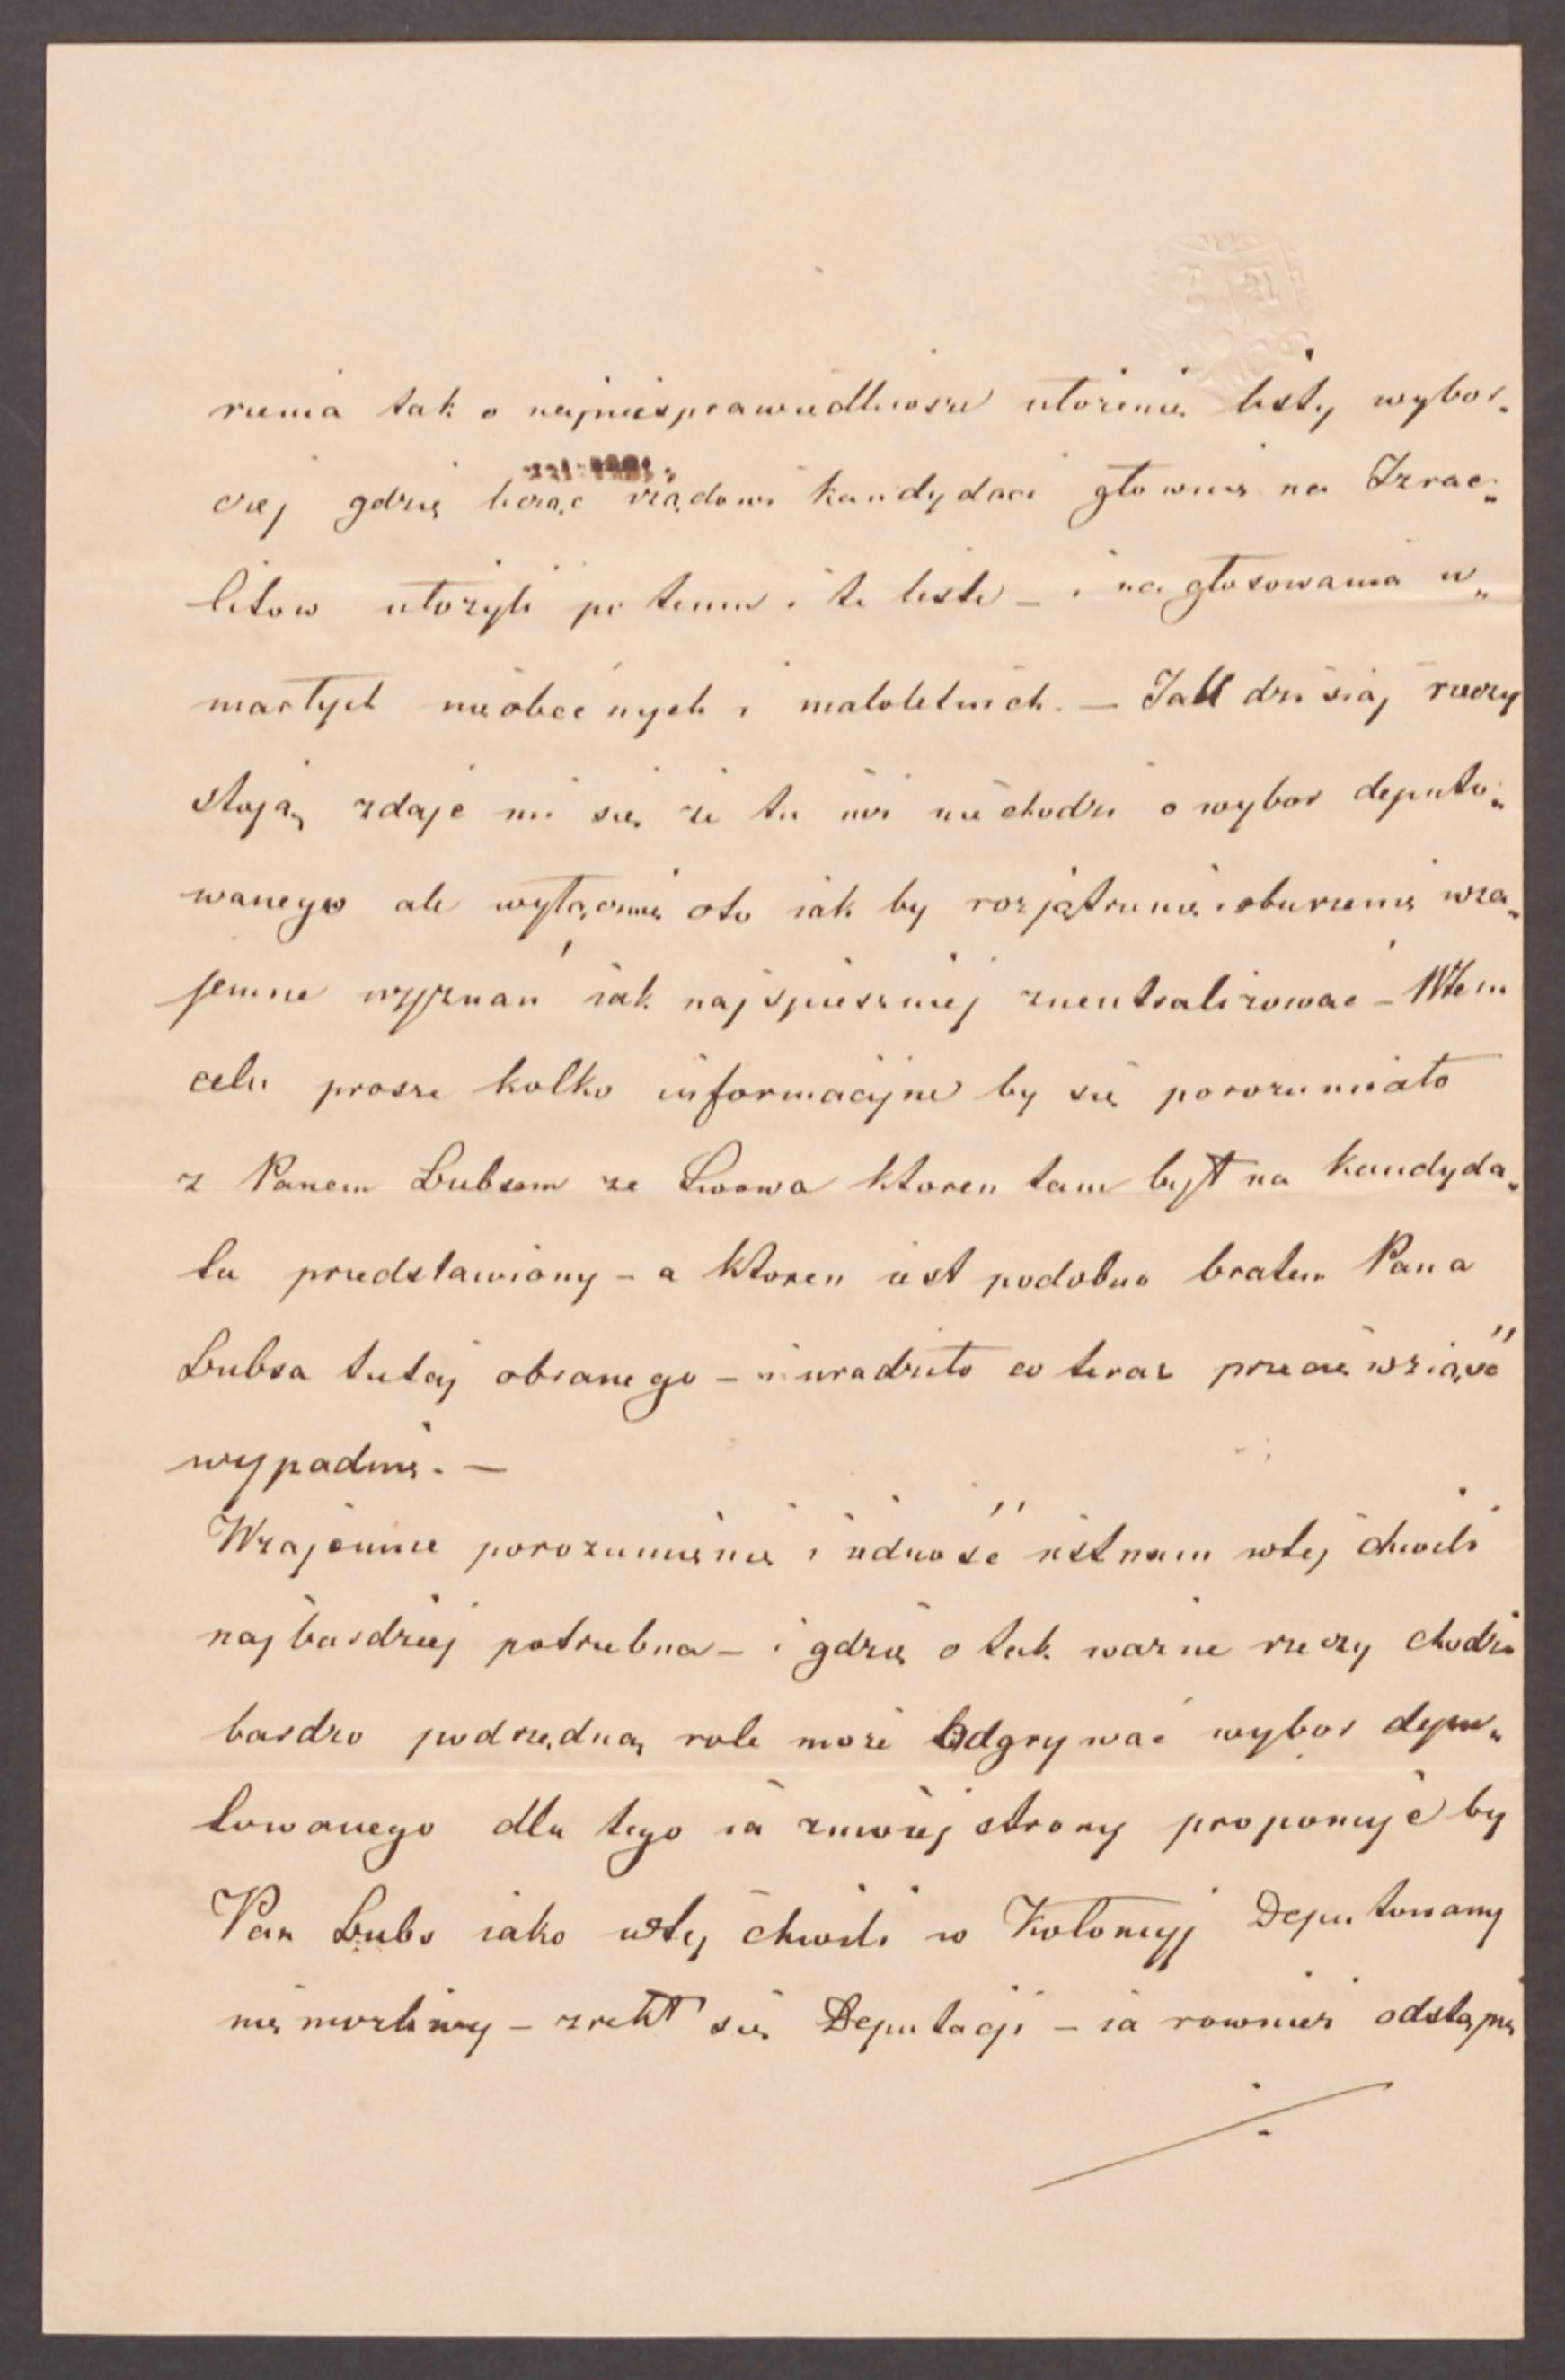 rzenia tak o najniesprawiedliwsze ułożenie listy wybor„
czej gdzie licząc rządowi kandydaci głownie na Izrae„
litow ułożyli po temu i te liste – i na głosowania u„
marłych nieobecnych i małoletnich. – Jak dzisiaj rzeczy
stoją, zdaje mi się że tu iuż nie chodzi o wybor deputo„
wanego ale wyłącznie oto iak by rozjątrzenie i oburzenie wza„
jemne wyznań iak najspieszniej zneutralizować – W tem
celu prosze kolko informacijne by się porozumiało
z Panem Bubsem ze Lwowa ktoren tam był na kandyda„
ta przedstawiony – a ktoren iest podobno bratem Pana
Bubsa tutaj obranego – i uradziło co teraz przedsięwziąść
wypadnie. –
Wzajemne porozumienie i iedność iest nam w tej chwili
najbardziej potrzebna – i gdzie o tak ważne rzeczy chodzi
bardzo podrzędną role może odgrywać wybor depu„
towanego dla tego ia z mojej strony proponuje by
Pan Bubs iako w tej chwili w Kołomyj Deputowany
niemożliwy – zrekł się Deputacji – ia rownież odstąpie